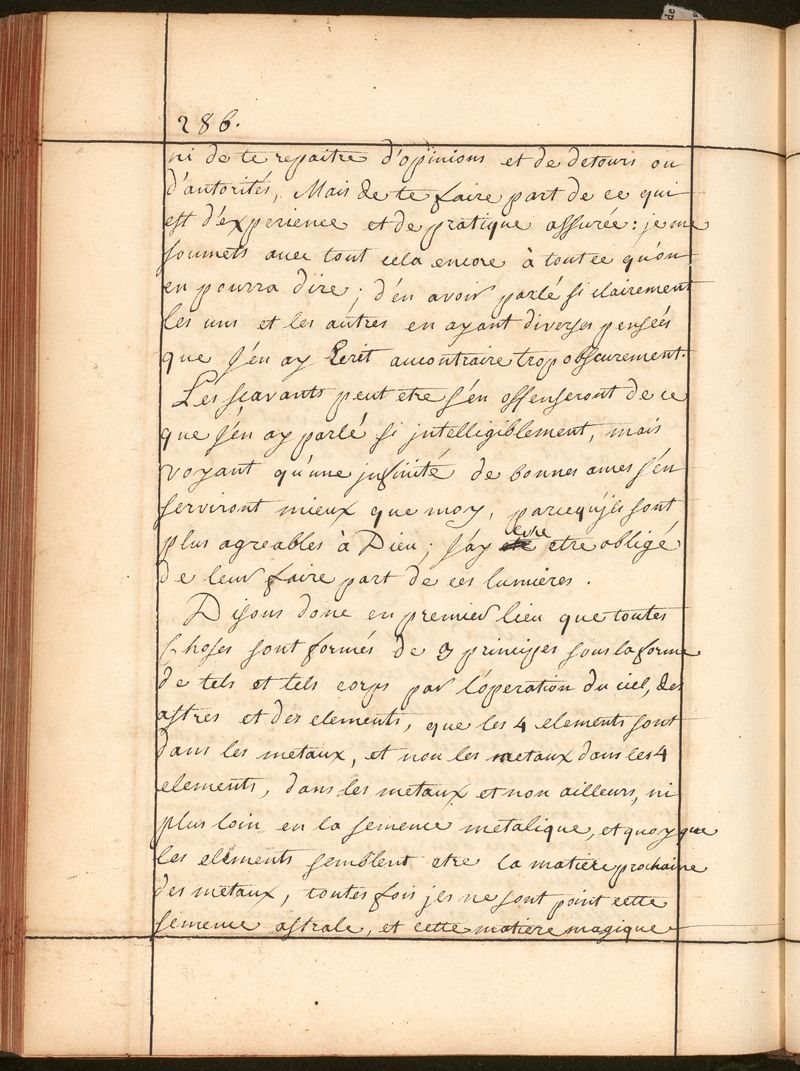 286.
ni de te repaitre d'opinions et de detours ou
d'autorités, Mais de te faire part de ce qui
est d'experience et de pratique assurée: je me
soumets avec tout cela encore à toutce qu'on
en pourra dire; d'en avoir parlé si clairement
les uns et les autres en ayant diverses pensées
que j'en ay Ecrit aucontraire trop obscurement.
Les scavants peut etre s'en offenseront de ce
que j'en ay parlé si jntelligiblement, mais
voyant qu'une jnfinité de bonnes ames s'en
serviront mieux que moy, parcequ'jls sont
plus agreables à Dieu; j'ay etre obligé
de leur faire part de ces lumières.
Disons donc en premier lieu que toutes
Choses sont formés de 3 principes sous la forme
de tels et tels corps par l'operation du ciel, des
astres et des elements, que les 4 elements sont
dans les metaux, et non les metaux dans les 4
elements, dans les metaux et non ailleurs, ni
plus loin en la semence metalique, et quoy que
les elements semblent etre la matiere prochaine
des metaux, toutes fois jls ne sont point cette
semence astrale, et cette matiere magique